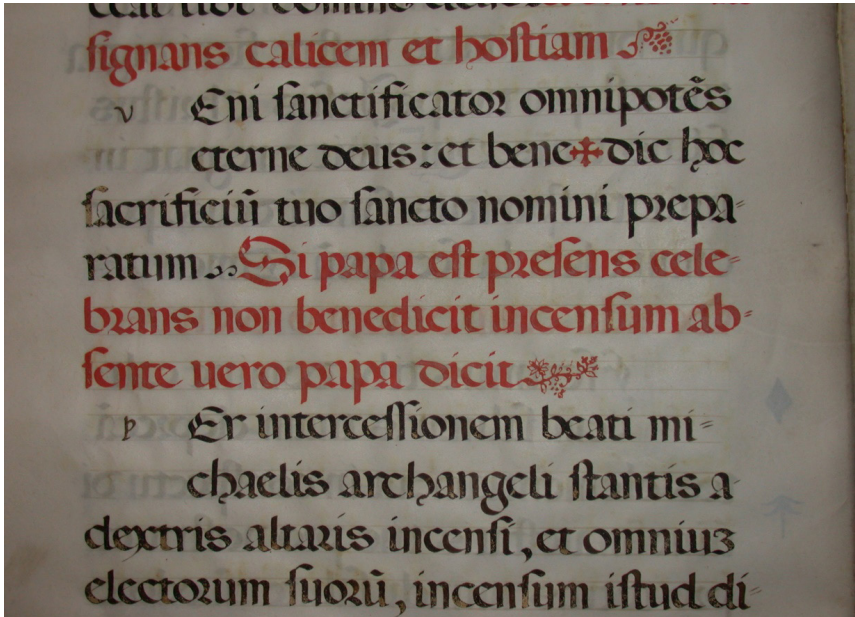 signans calicem et hostiam
v Eni sanctificator omnipotẽs
eterne deus: et bene✠dic hoc
sacrificiũ tuo sancto nomini prepa-
ratum. Si papa est presens cele-
brans non benedicit incensum ab-
sente uero papa dicit
p Er intercessionem beati mi-
chaelis archangeli stantis a
dextris altaris incensi, et omniuʒ
electorum suorũ, incensum istud di-